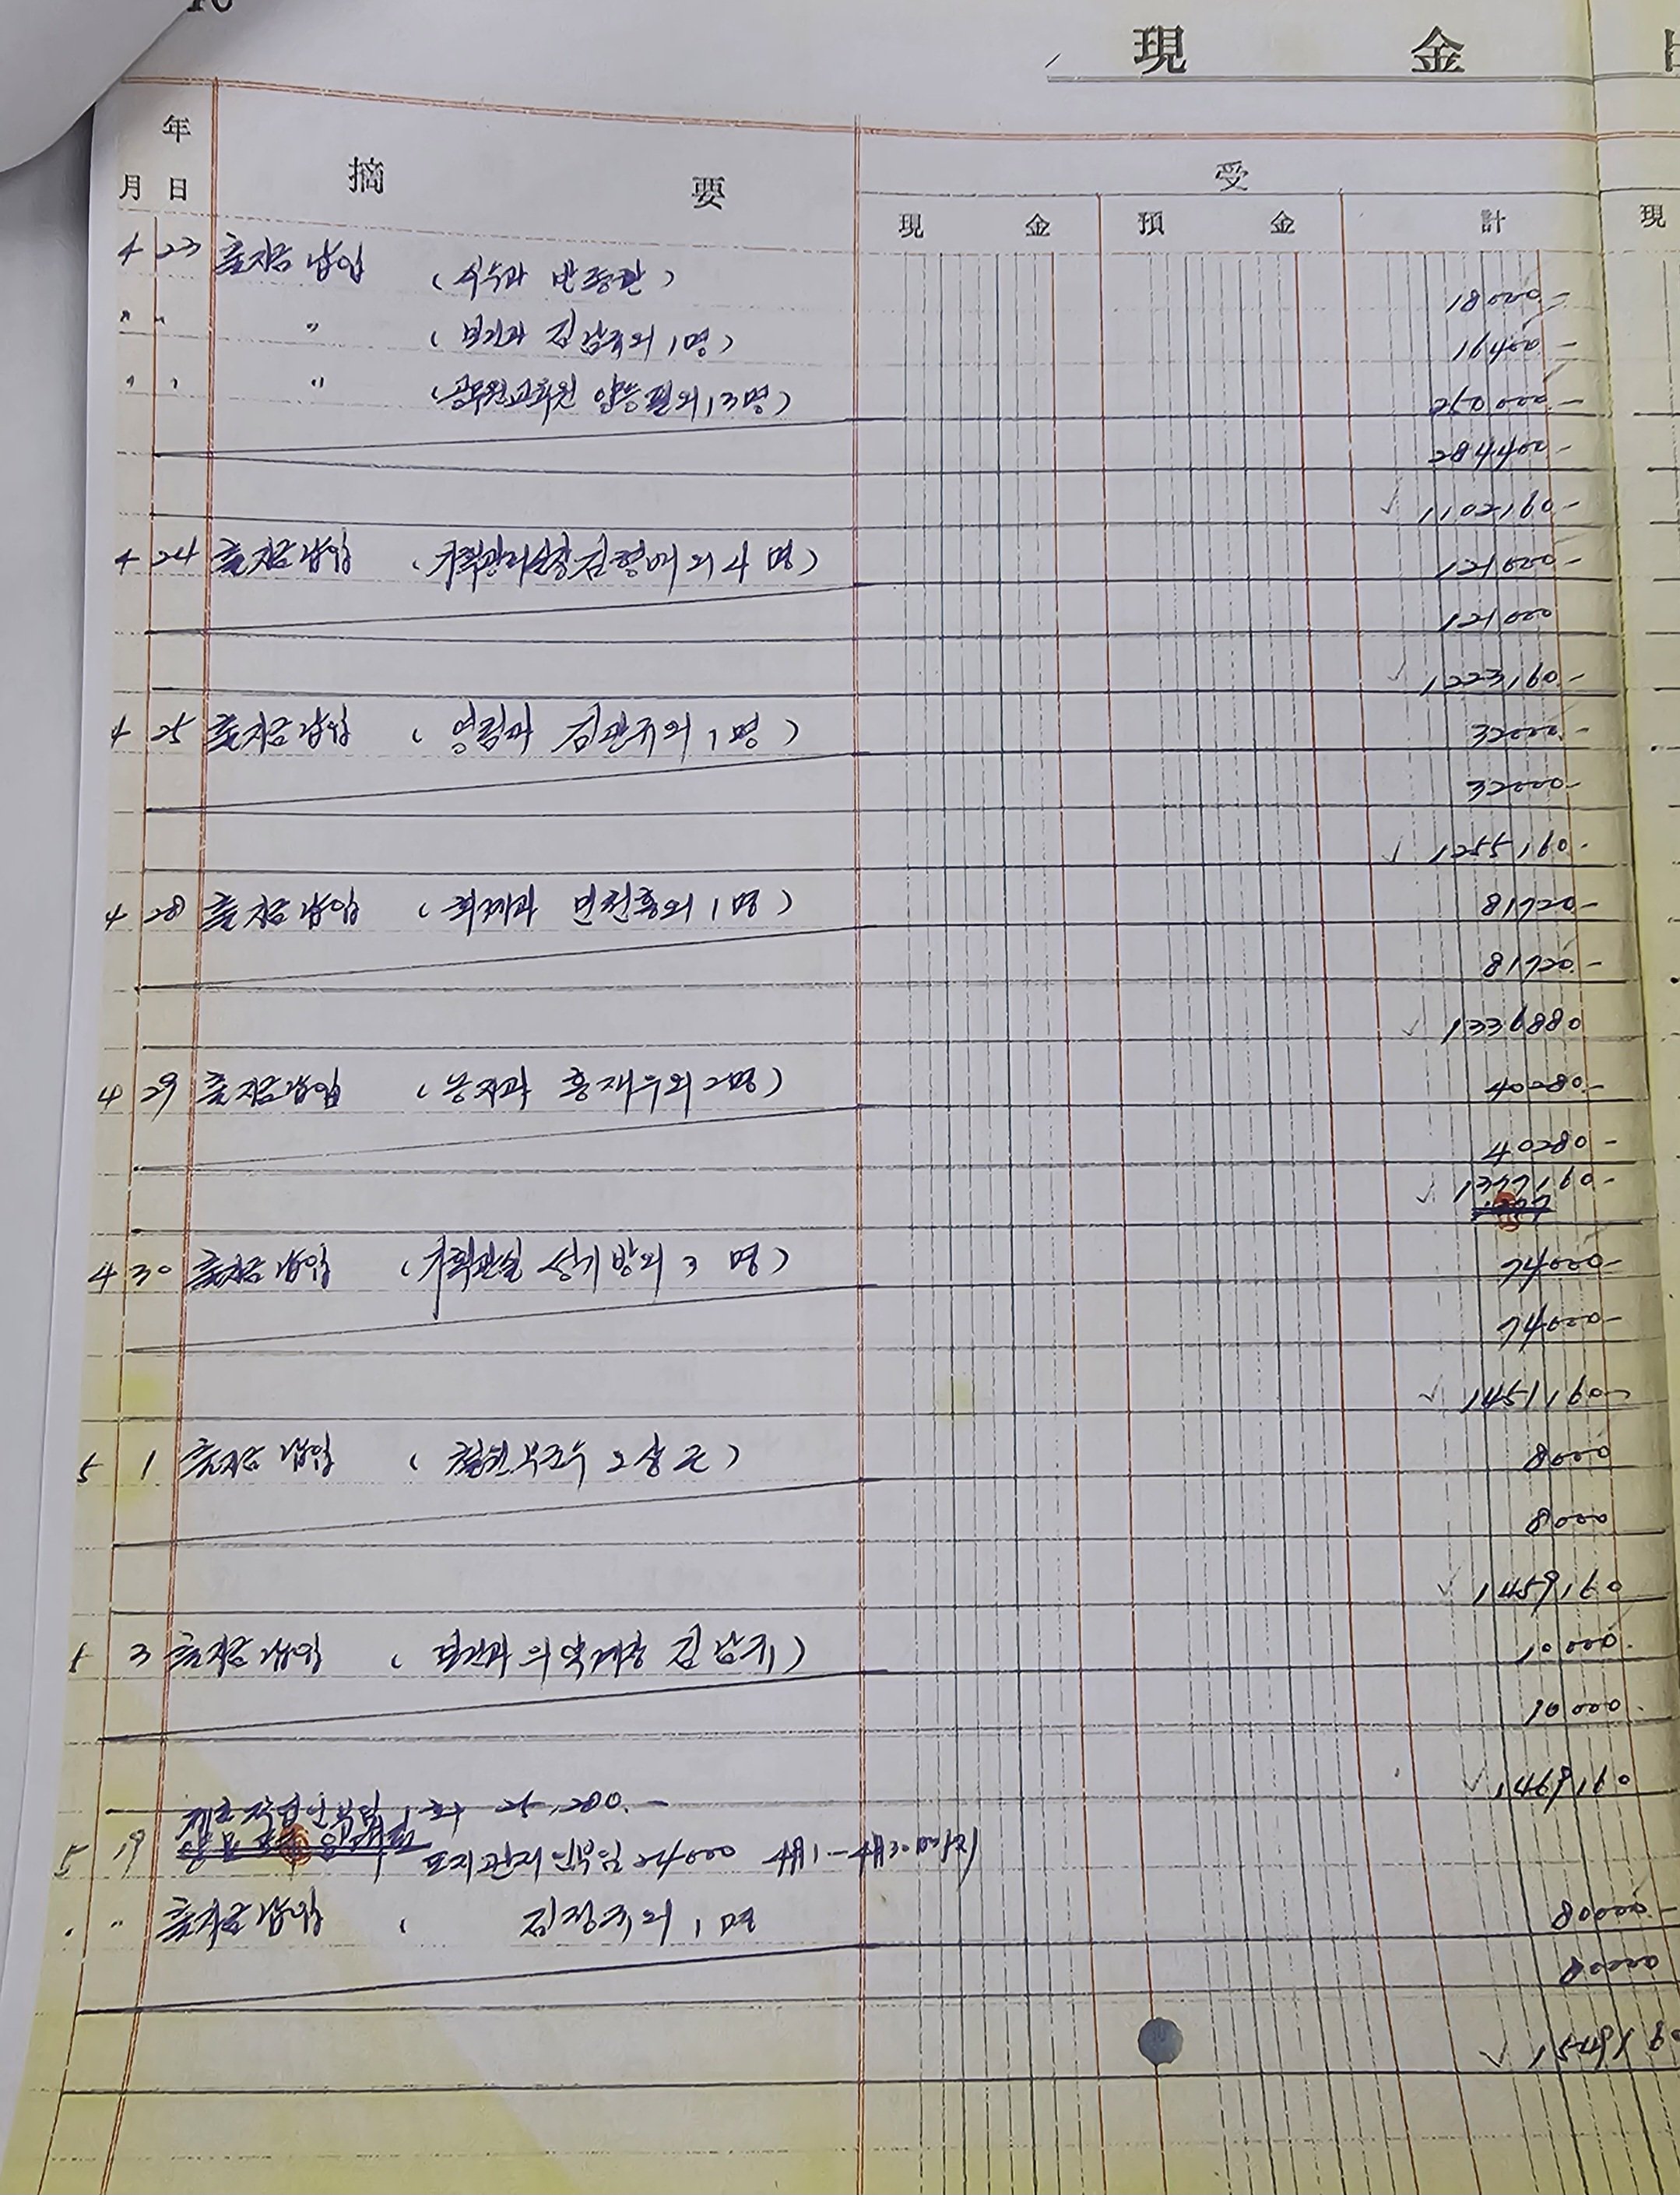 現 金
年
月 日 摘 要 受
現 金 預 金 計 現
4 23 출자금 납입 (식수과 반종관) 18000-
〃 〃 〃 (보건과 김남규외 1명) 16400-
〃 〃 〃 (공무원교육원 양승필외 13명) 250000-
284400-
✓ 1102160-
4 24 출자금 납입 (기획관리실장 김형배 외 4 명) 121000-
121000
✓ 1223160-
4 25 출자금 납입 ( 영림과 김관규외 1 명 ) 32000-
32000-
✓ 1255160-
4 28 출자금 납입 ( 회계과 민천홍외 1명 ) 81720-
81720-
✓ 1336880
4 29 출자금 납입 ( 농지과 홍재우외 2명 ) 40280-
40280-
✓ 1377160-
4 30 출자금 납입 (기획관실 성기방외 3 명 ) 74000-
74000-
✓ 1451160-
5 1 출자금 납입 ( ) 8000
8000
✓ 1459160
5 3 출자금 납입 ( 보건과 의약계장 김남규 ) 10000-
10000
✓ 1469160
25,280.-
5 19 24000 4月1-4月30日까지
〃 출자금 납입 ( 김정규외 1 명 80000-
80000
✓ 1549160